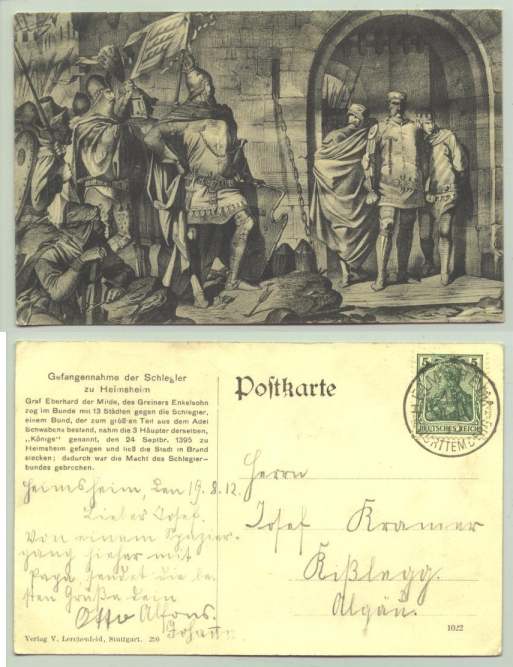 Gefangennahme der Schlegler
zu Heimsheim
Graf Eberhard der Milde, des Greiners Enkelsohn
zog im Bunde mit 13 Städten gegen die Schlegler,
einem Bund, der zum größten Teil aus dem Adel
Schwabens bestand, nahm die 3 Häupter derselben,
„Könige" genannt, den 24 Septbr. 1395 zu
Heimsheim gefangen und ließ die Stadt in Brand
stecken; dadurch war die Macht des Schlegler-
bundes gebrochen.
Postkarte
5 5
DEUTSCHES REICH
Heimsheim, den 19.8.12.
Lieber Josef.
Von einem Spazier-
gang hieher mit
Papa, sendet die be-
sten Grüße Dein
Otto Alfons.
Johann
Herrn
Josef Kramer
Kißlegg.
Algäu.
1022
Verlag V. Lerchenfeld, Stuttgart.